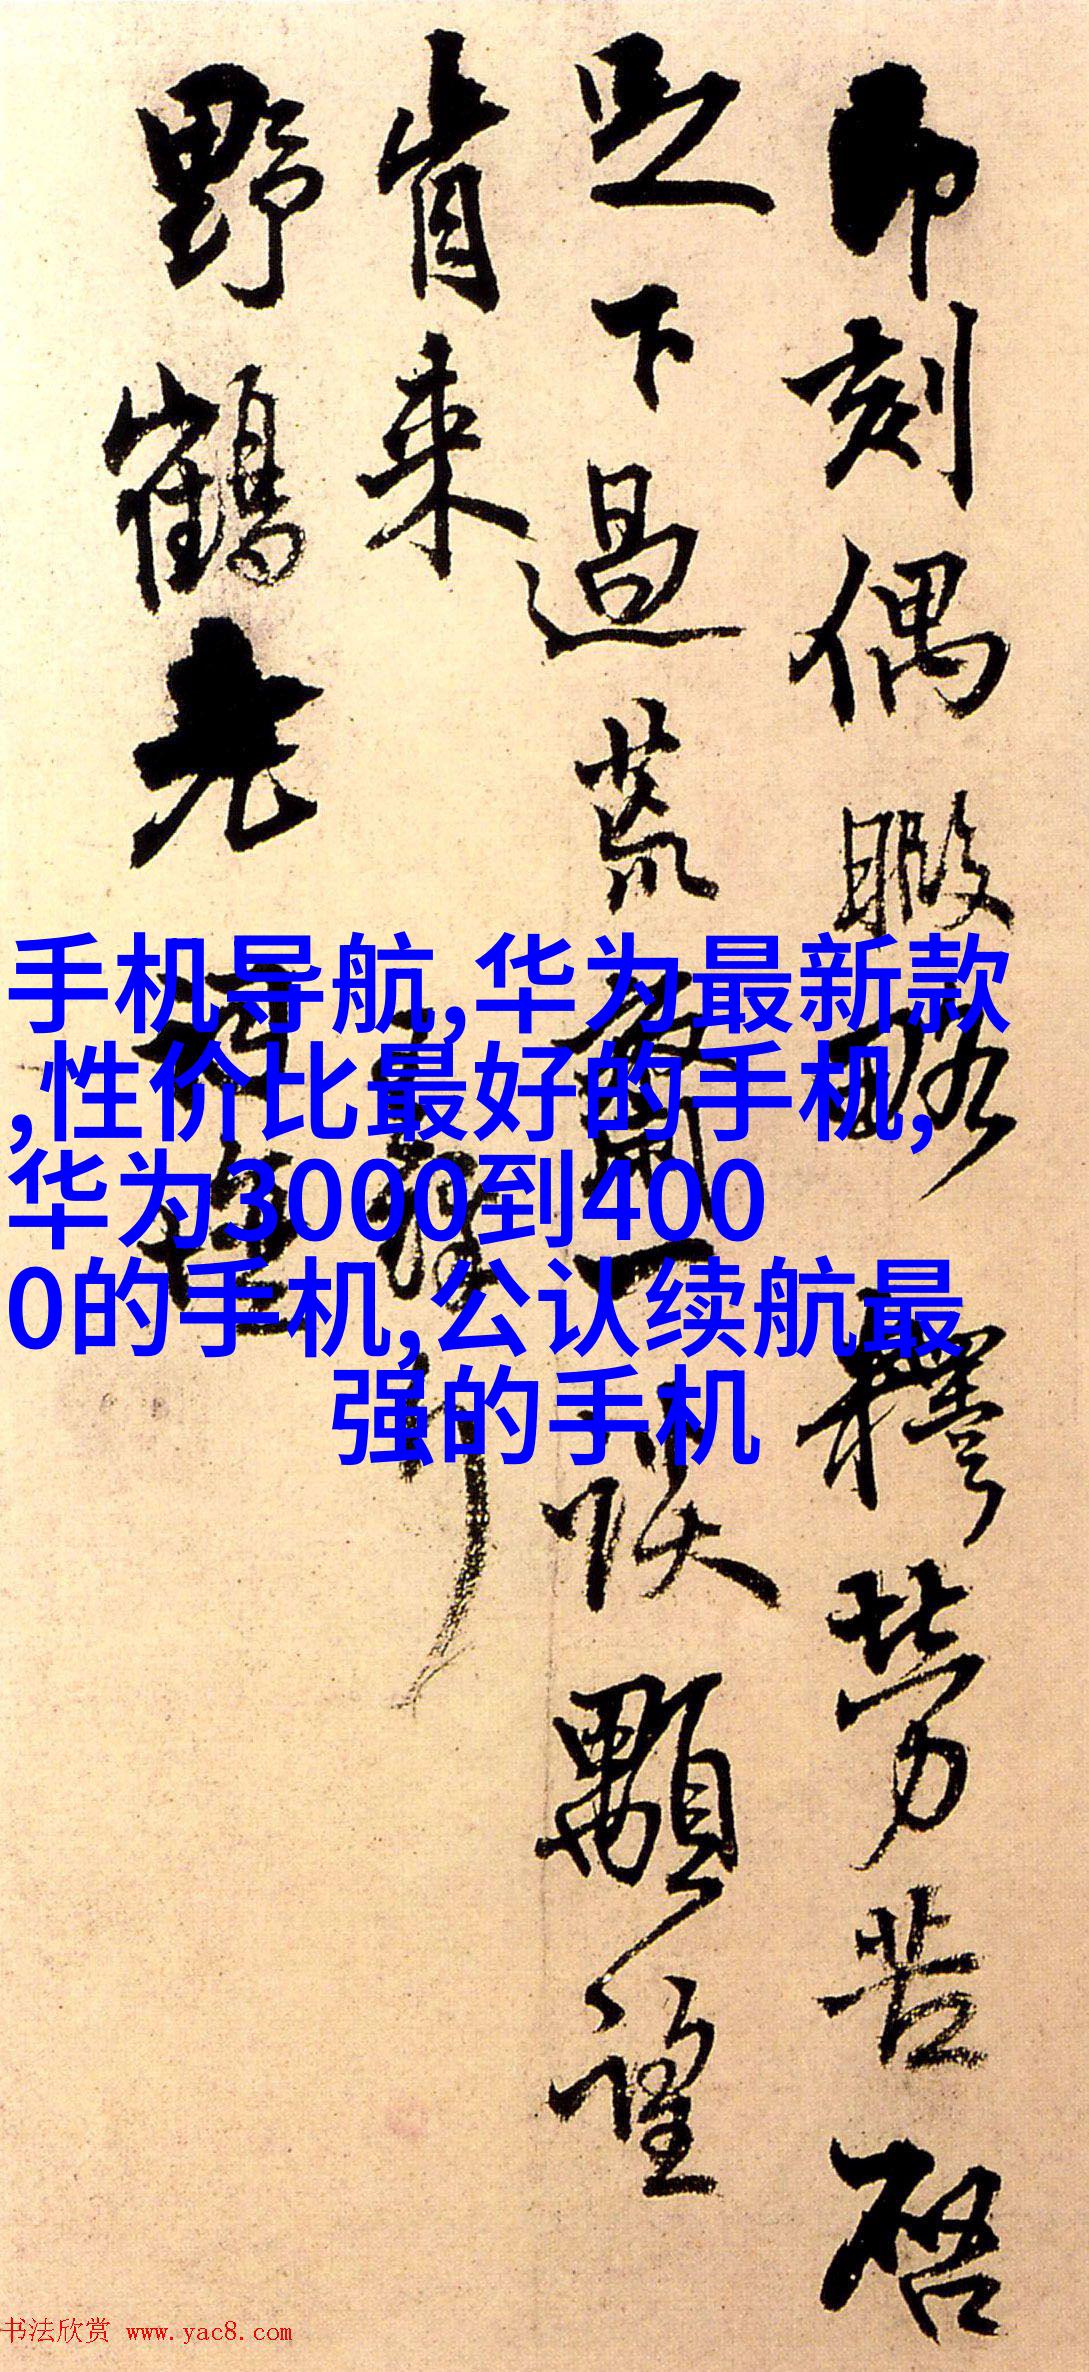 即刻偶暇略釋勞苦启
足下過荒齋一談顒望
肯来
野鶴老
手机导航,华为最新款
,性价比最好的手机,
华为3000到400
0的手机,公认续航最
强的手机
书法欣赏 www.yac8.com